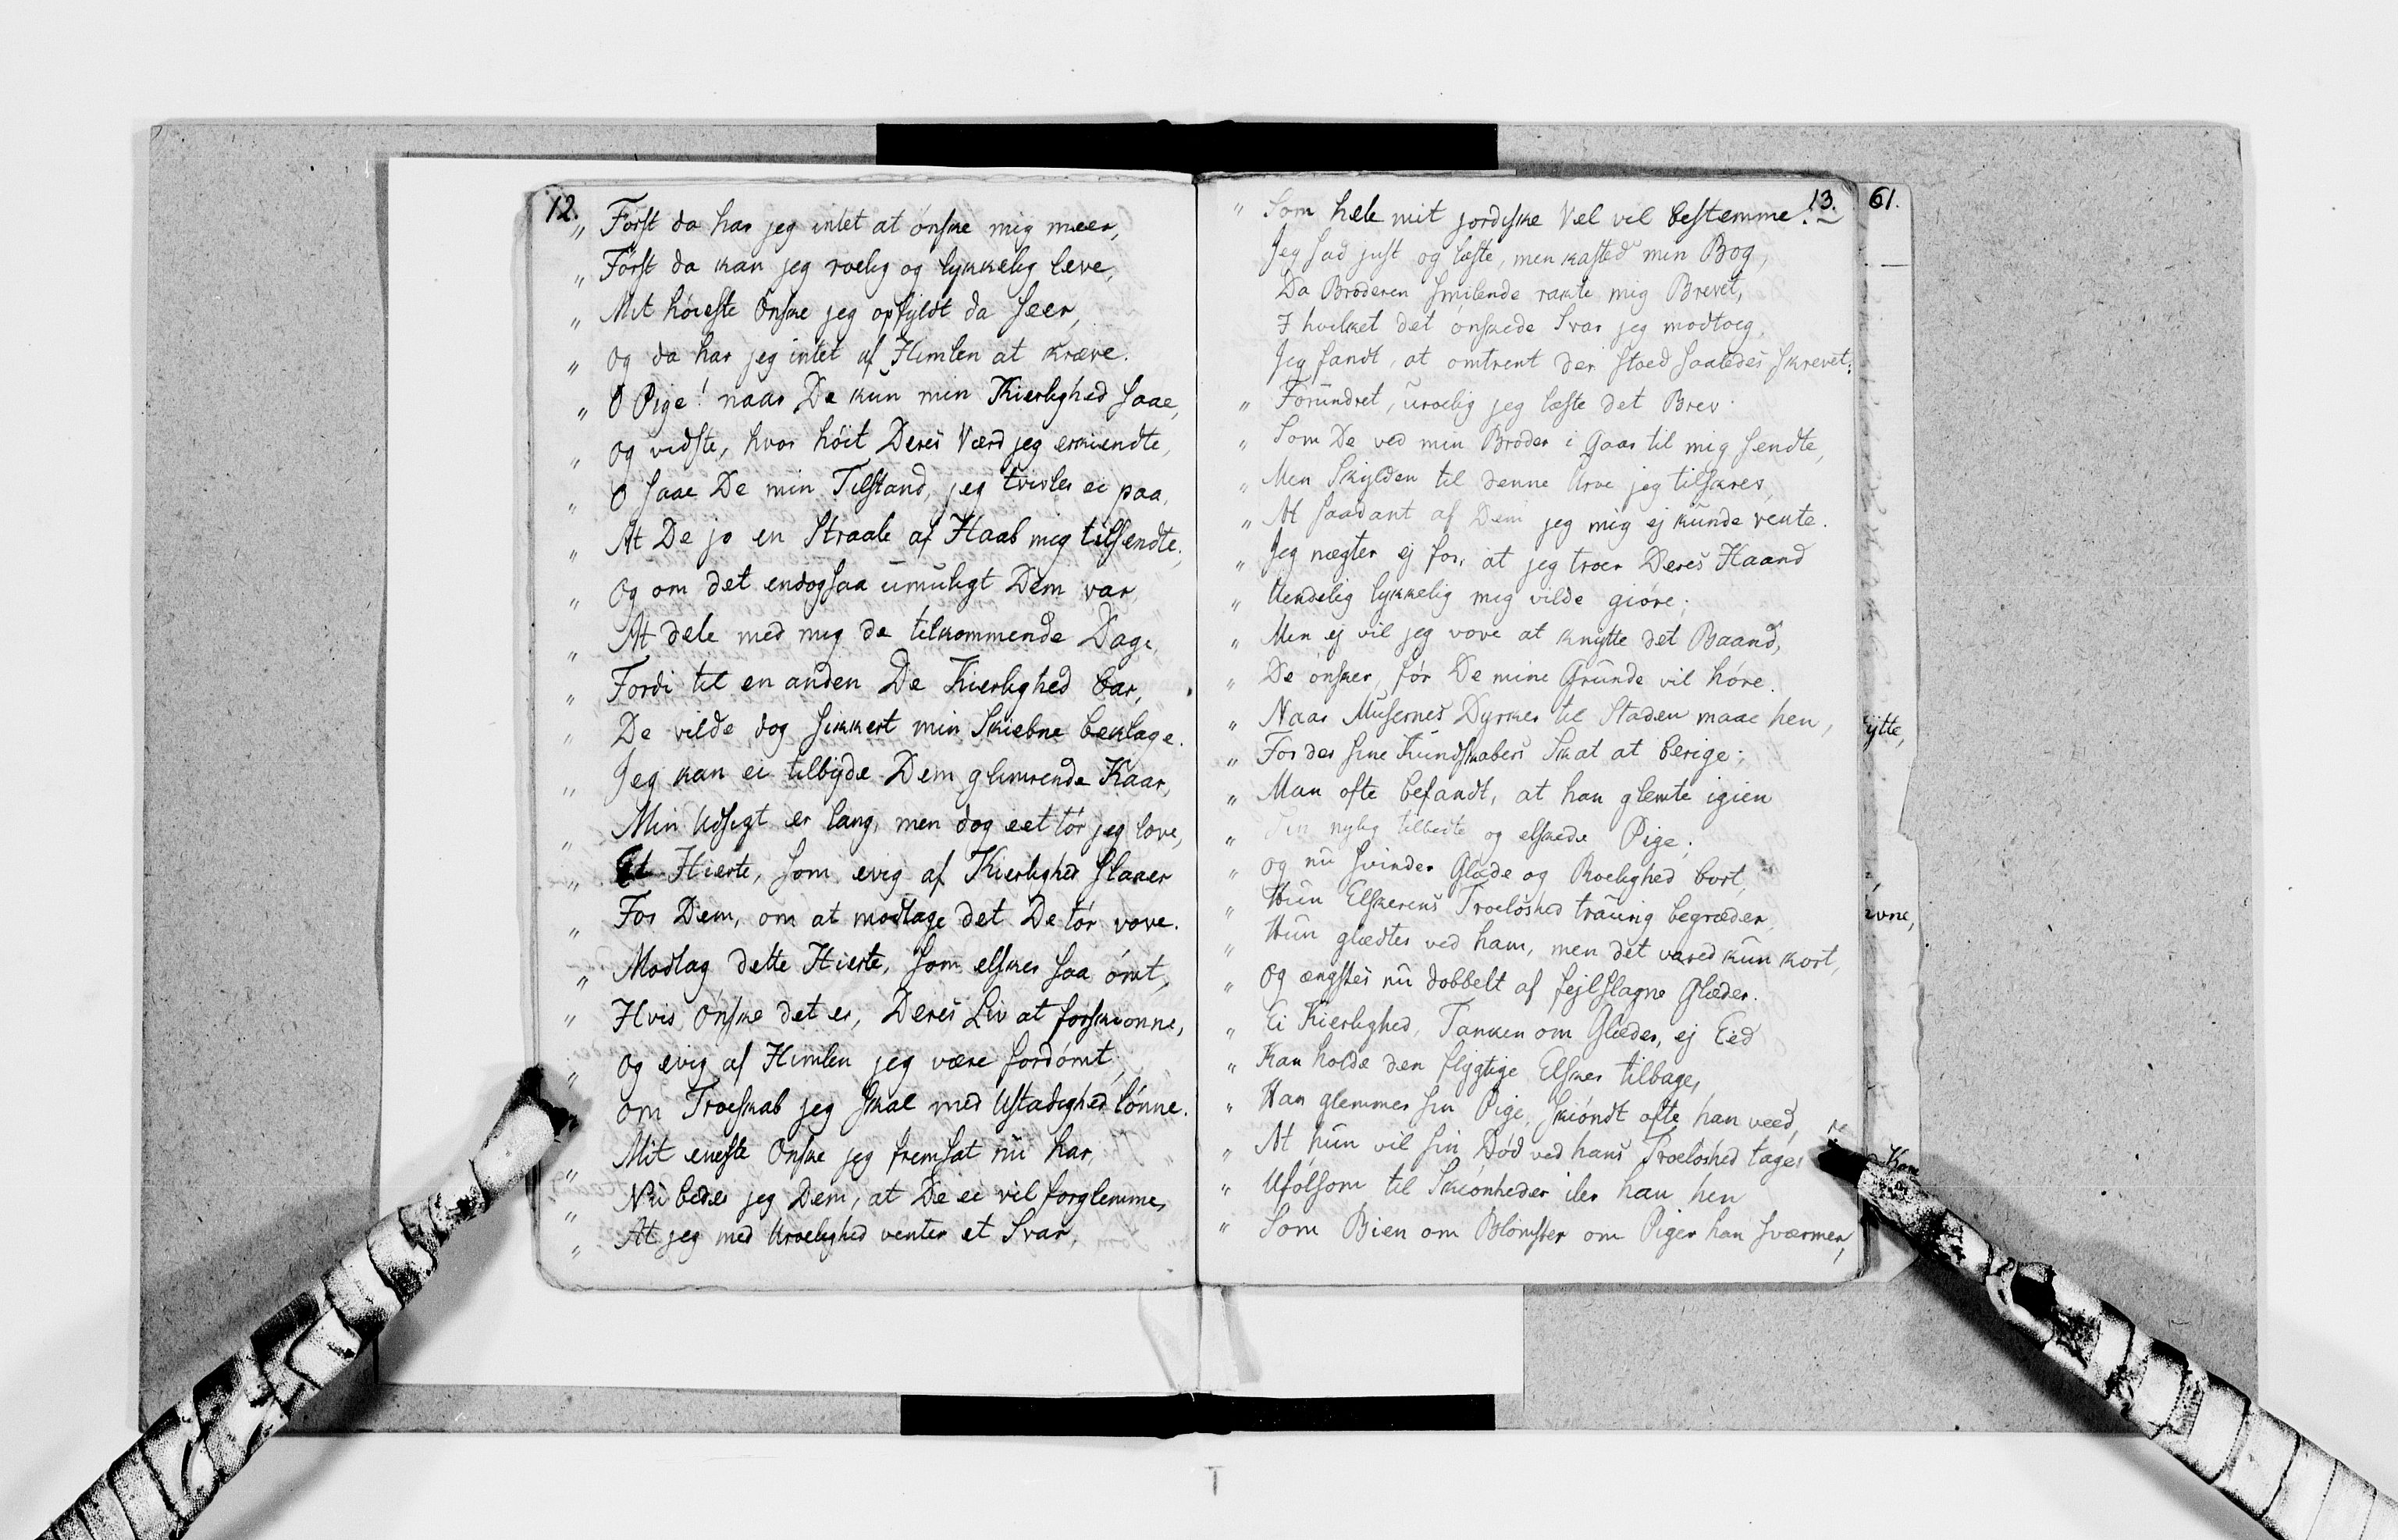 12.
„ Først da har jeg intet at ønske mig meer,
„ Først da kan jeg roelig og lykkelig leve,
„ Mit høieste Ønske jeg opfyldt da seer,
„ Og da har jeg intet af Himlen at kræve.
„ O Pige! naar De kun min Kierlighed saae,
„ Og vidste, hvor høit Deres Værd jeg erkiendte,
„ O saae De min Tilstand, jeg tvivler ei paa,
„ At De jo en Straale af Haab mig tilsendte;
„ Og om det endogsaa umuligt Dem var
„ At dele med mig de tilkommende Dage,
„ Fordi til en anden De Kierlighed bar,
„ De vilde dog sikkert min Skiebne beklage.
„ Jeg kan ei tilbyde Dem glimrende Kaar,
„ Min Udsigt er lang, men dog eet tør jeg love,
„ Et Hierte, som evig af Kierlighed slaaer
„ For Dem, om at modtage det De tør vove.
„ Modtag dette Hierte, som elsker saa ømt,
„ Hvis Ønske det er, Deres Liv at forskiønne,
„ Og evig af Himlen jeg være fordømt,
„ Om Troeskab jeg skal med Ustadighed lønne.
„ Mit eneste Ønske jeg fremsat nu har,
„ Nu beder jeg Dem, at De ei vil forglemme,
„ At jeg med Uroelighed venter et Svar,
13.
„ Som hele mit jordiske Vel vil bestemme!
Jeg sad just og læste, men kasted min Bog,
Da Broderen smilende rakte mig Brevet,
I hvilket det ønskede Svar jeg modtoeg,
Jeg fandt, at omtrent der stoed saaledes skrevet:
„ Forundret, uroelig jeg læste det Brev
„ Som De ved min Broder i Gaar til mig sendte,
„ Men Skylden til denne Uroe jeg tilskrev,
„ At saadant af Dem jeg mig ej kunde vente.
„ Jeg nægter ej for, at jeg troer Deres Haand
„ Uendelig lykkelig mig vilde giøre;
„ Men ej vil jeg vove at knytte det Baand,
„ De ønsker, før De mine Grunde vil høre.
„ Naar Musernes Dyrker til Staden maae hen,
„ For der sine Kundskabers Skat at berige;
„ Man ofte befandt, at han glemte igien
„ Sin nylig tilbedte og elskede Pige;
„ Og nu svinder Glæde og Roelighed bort,
„ Hun Elskerens Troeløshed traurig begræder,
„ Hun glædtes ved ham, men det vared kun kort,
„ Og ængstes nu dobbelt af fejlslagne Glæder.
„ Ei Kierlighed, Tanken om Glæder, ej Eed
„ Kan holde den flygtige Elsker tilbage,
„ Han glemmer sin Pige, skiøndt ofte han veed,
„ At hun vil sin Død ved hans Troeløshed tage;
„ Ufølsom til Skiønheder iler han hen
„ Som Bien om Blomster om Piger han sværmer,
61.
ytte,